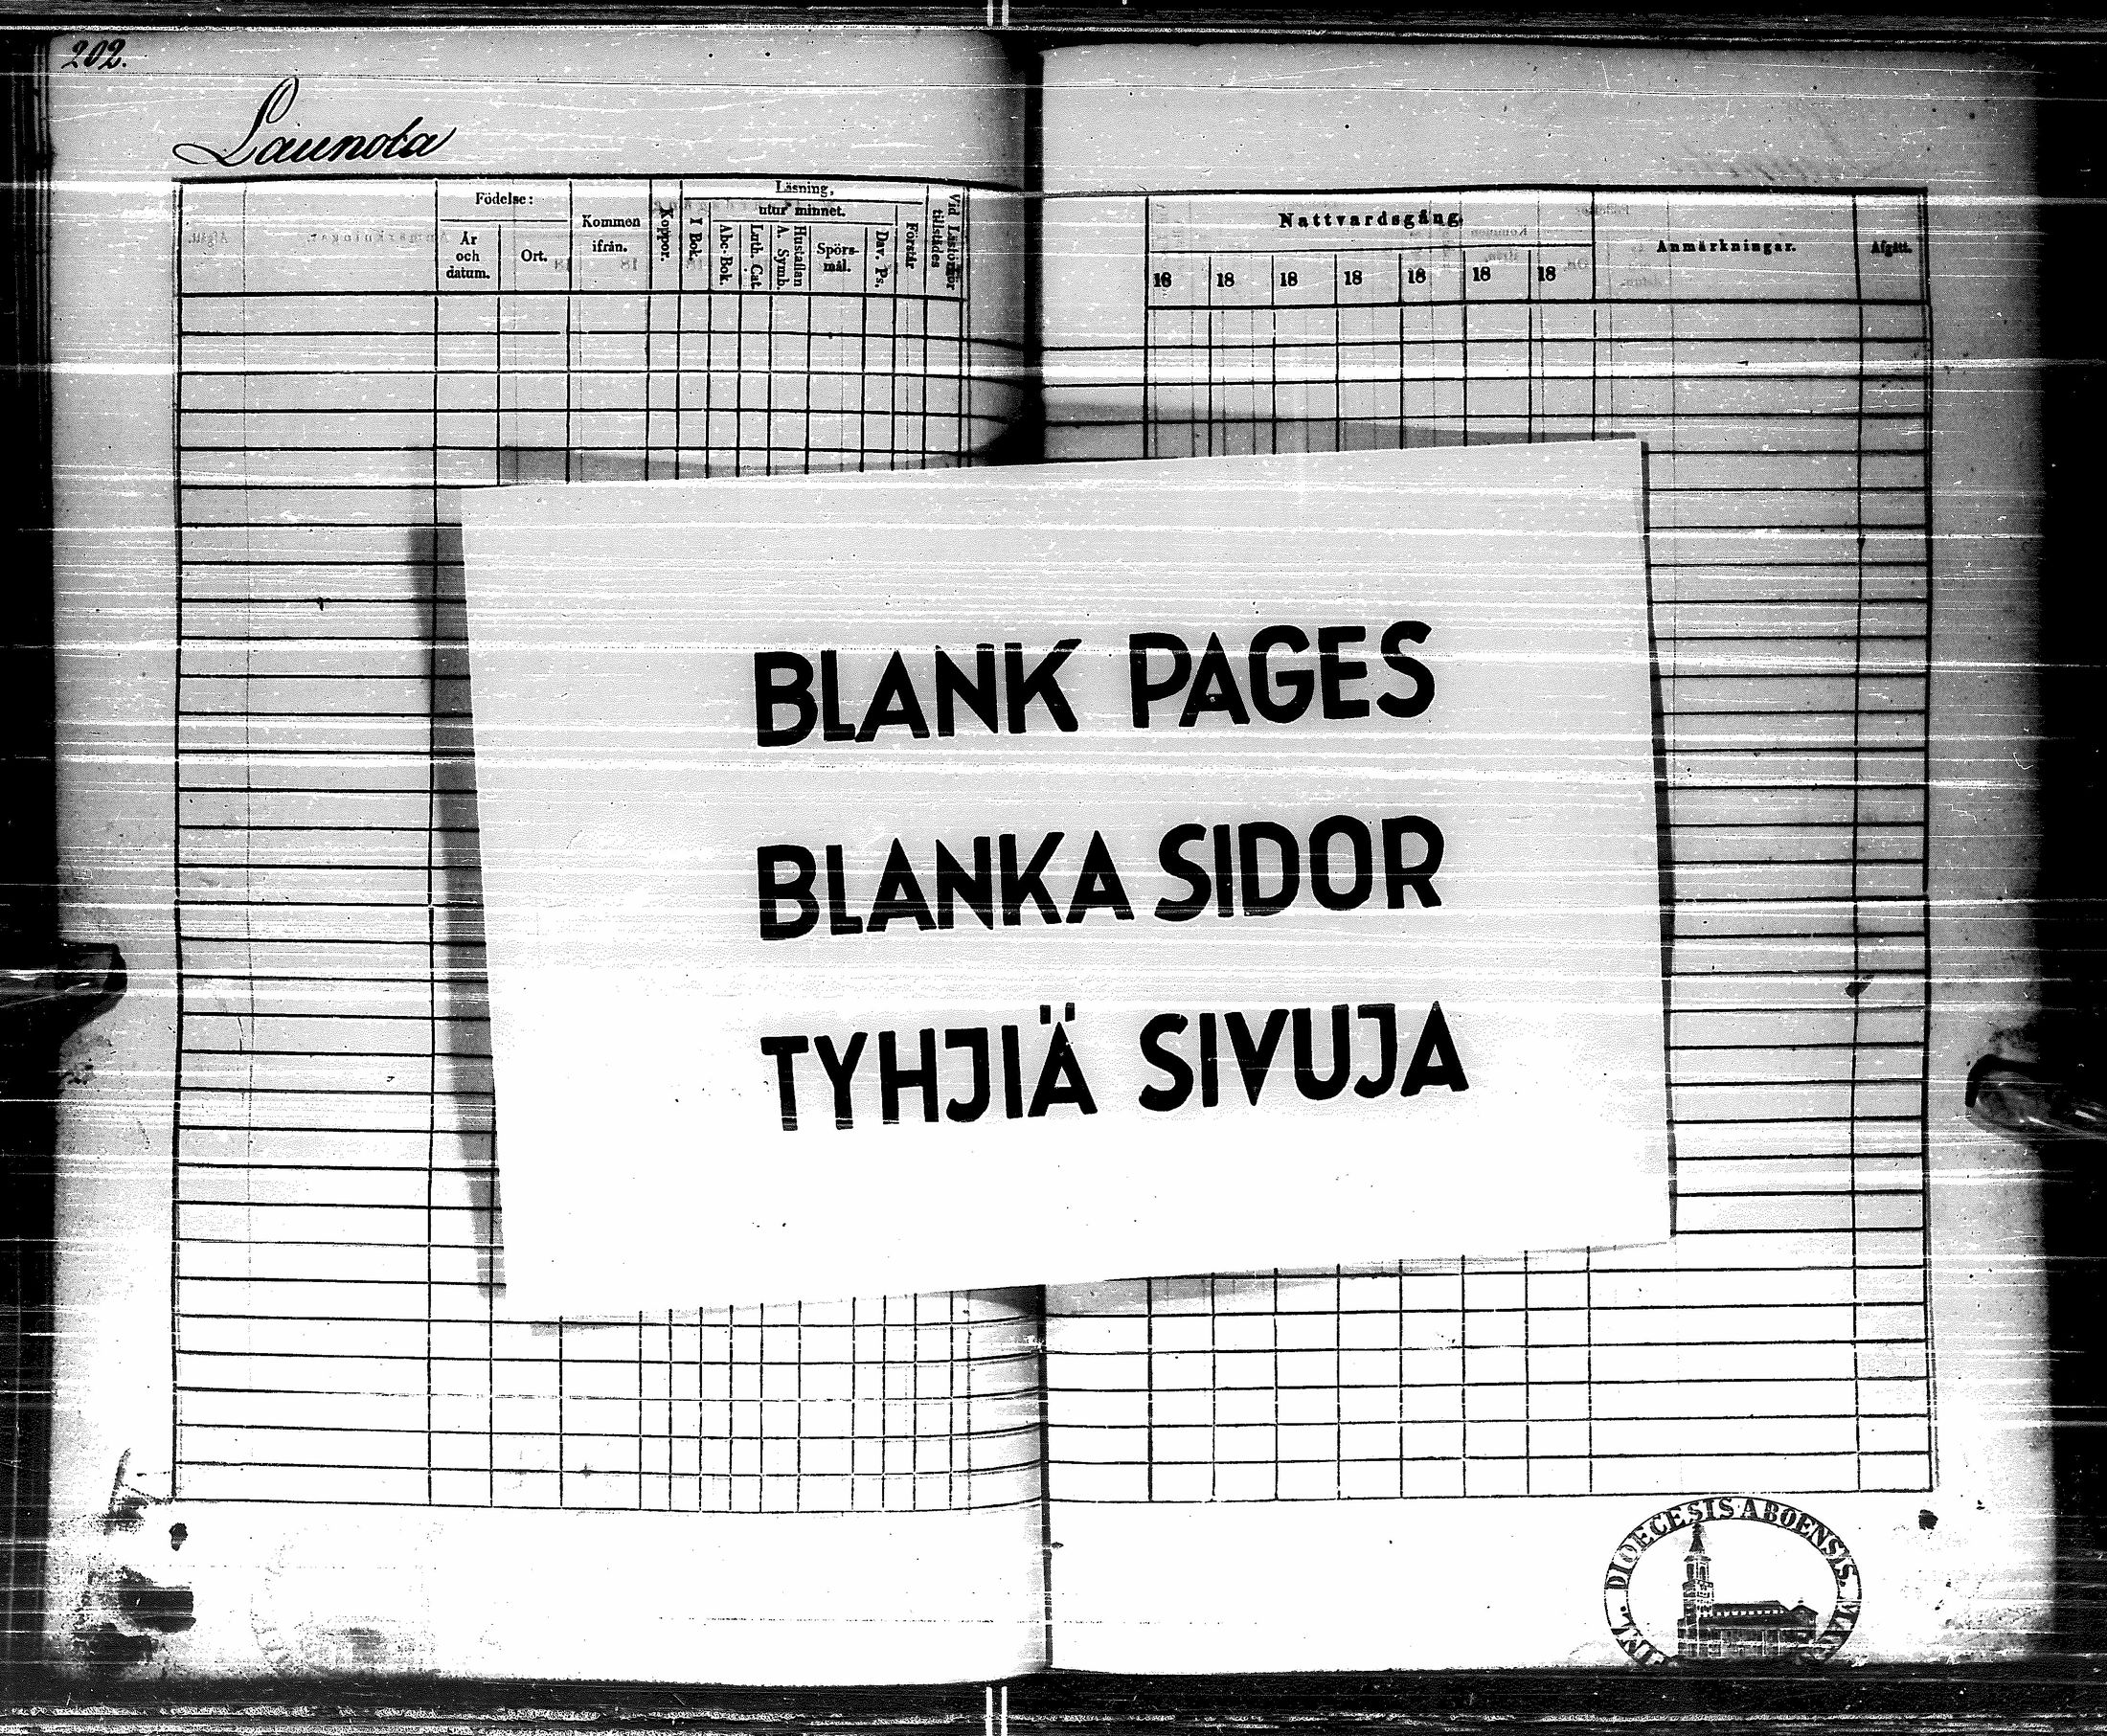 202.
Launola
Födelse:
År
och
datum.
Ort.
Kommen
ifrån.
Koppor.
Läsning,
utur minnet.
I Bok.
Abc-Bok.
Luth. Cat.
A. Symb.
Hustaflan
Spörs-
mål.
Dav. Ps.
Förstår
Vid Läsförhör
tillstädes
Nattvardsgång.
18 18 18 18 18 18 18
Anmärkningar.
Afgått.
BLANK PAGES
BLANKA SIDOR
TYHJIÄ SIVUJA
DIOECESIS ABOENSIS.